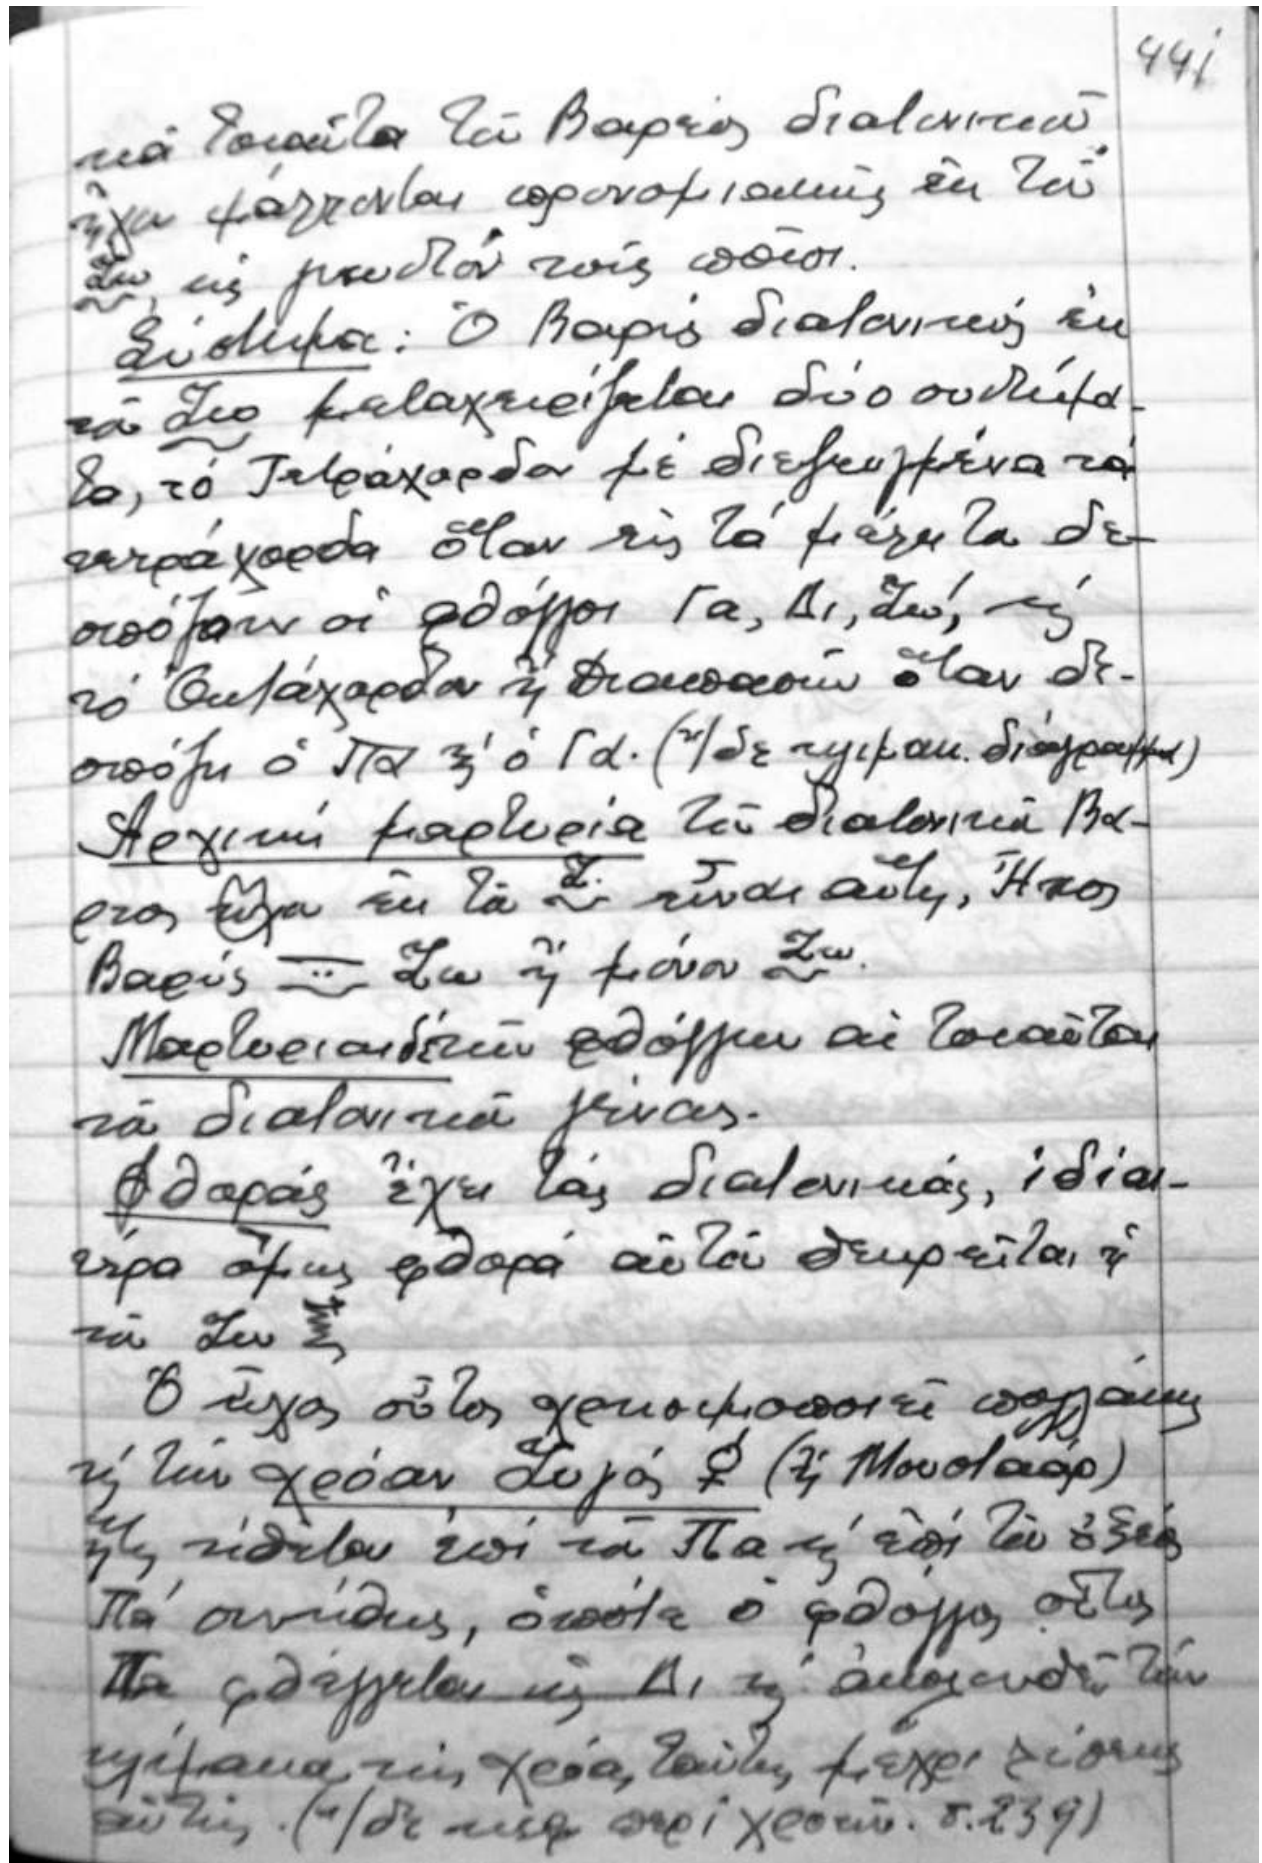 441
κά τοιαῦτα τοῦ Βαρέος διατονικοῦ
ἤχου ψάλλονται προνομιακῶς ἐκ τοῦ
Ζω, ὡς γνωστόν τοῖς πᾶσι.
Σύστημα: Ὁ Βαρύς διατονικός ἐκ
τοῦ Ζω μεταχειρίζεται δύο συστήμα-
τα, τό Τετράχορδον μέ διεζευγμένα τά
τετράχορδα ὅταν εἰς τά μέλη τα δε-
σπόζουν οἱ φθόγγοι Γα, Δι, Ζω, καί
τό Ὀκτάχορδον ἤ Διαπασῶν ὅταν δε-
σπόζῃ ὁ Πα καί ὁ Γα. (ἴδε κλιμακ. διάγραμμα)
Ἀρχική μαρτυρία τοῦ διατονικοῦ Βα-
ρέος ἤχου ἐκ τοῦ Ζ. εἶναι αὕτη, Ἦχος
Βαρύς Ζω ἤ μόνον Ζω.
Μαρτυρίαι δέ τῶν φθόγγων αἱ τοιαῦται
τοῦ διατονικοῦ γένους.
Φθοράς ἔχει τάς διατονικάς, ἰδιαι-
τέρα ὅμως φθορά αὐτοῦ θεωρεῖται ἡ
τοῦ Ζω
Ὁ ἦχος οὗτος χρησιμοποιεῖ πολλάκις
καί τήν χρόαν Ζυγός (ἤ Μουσταάρ)
ἥτις τίθεται ἐπί τοῦ Πα καί ἐπί τοῦ ὀξέος
Πά συνήθως, ὁπότε ὁ φθόγγος οὗτος
Πα φθέγγεται ὡς Δι καί ἀκολουθεῖ τήν
κλίμακα τῆς χρόας ταύτης μέχρι λύσεως
αὐτῆς. (ἴδε κεφ. περί χροῶν. σ. 239)